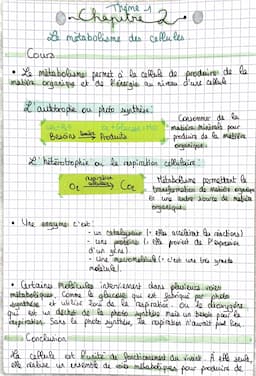 Thème 1
Chapitre 2
Le métabolisme des cellules
Cours
• Le métabolisme permet à la cellule de produire de la
matière organique et de l'énergie au niveau d'une cellule
L'autotrophe ou photo synthèse:
Besoins Produits
Consomme de la
matière minérale pour
produire de la matière
organique.
L'hétérotrophie ou la respiration cellulaire:
O2 respiration cellulaire CO2
Métabolisme permettant la
transformation de matière organique
et une autre source de matière
organique.
• Une enzyme c'est:
- un catalyseur (= elle accélère les réactions)
- une protéine (= elle provient de l'expression
d'un gène).
- une macromolécule (= c'est une très grande
molécule).
• Certaines molécules interviennent dans plusieurs voies
métaboliques. Comme le glucose qui est fabriqué par photo
synthèse et utilisé lors de la respiration. Ou le dioxygène
qui est un déchet de la photo synthèse mais un besoin pour la
respiration. Sans la photo synthèse, la respiration n'aurait pas lieu.
Conclusion
La cellule est l'unité de fonctionnement du vivant. À elle seule,
elle réalise un ensemble de voies métaboliques pour produire de